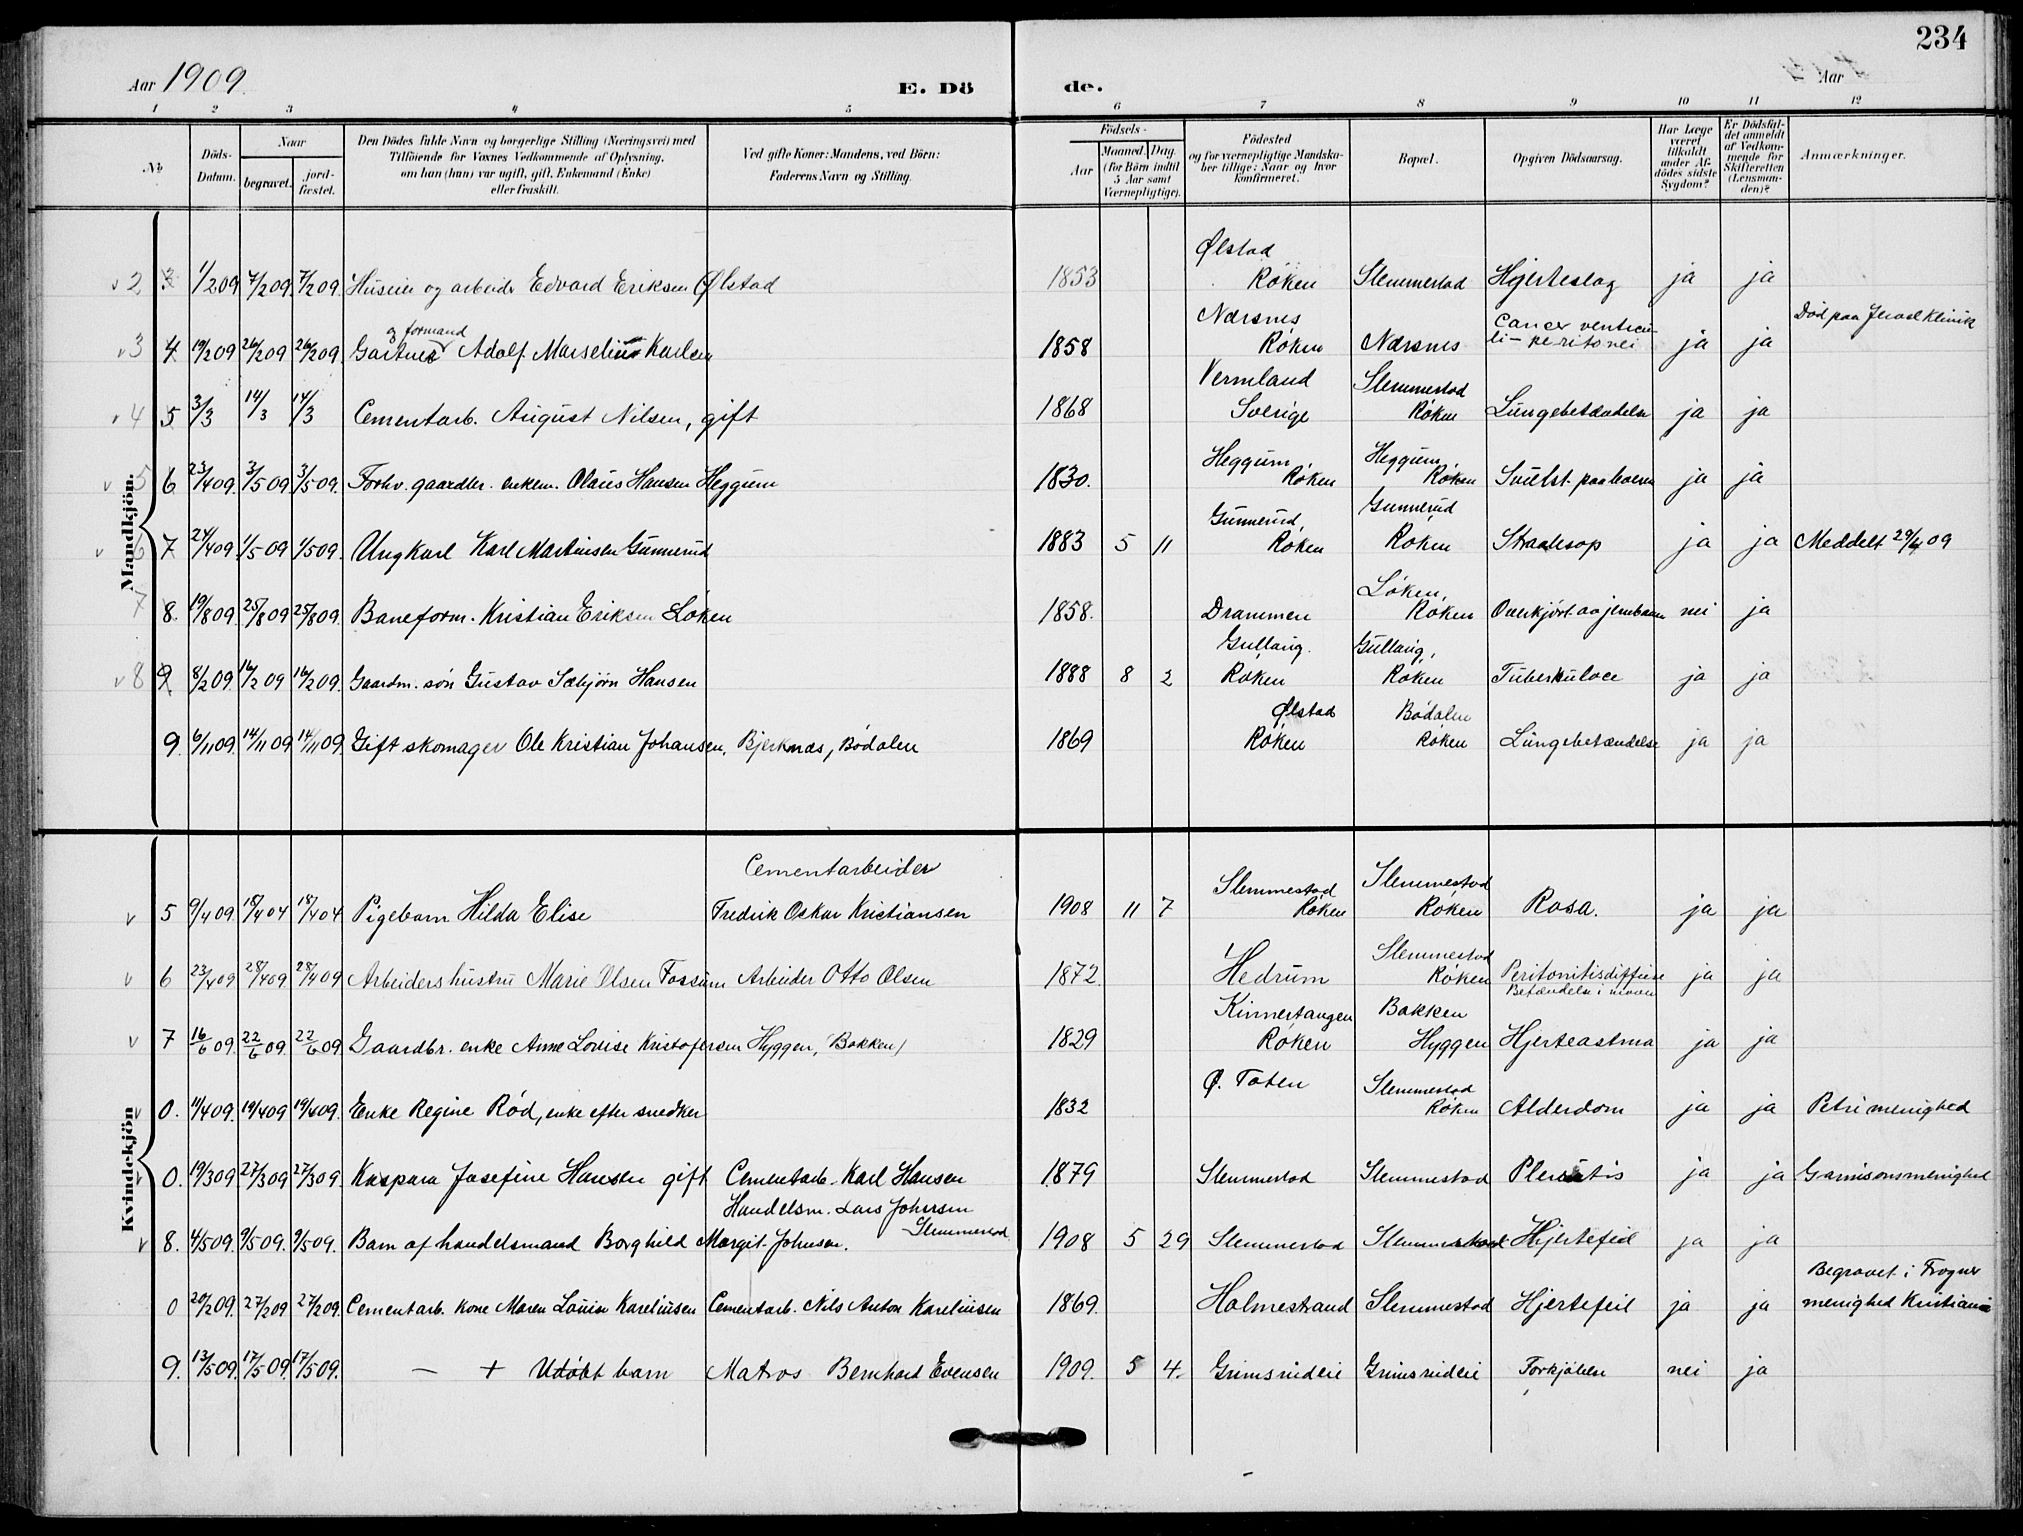 234
Aar 1909.
E. Dö
de.
Aar
1 2 3 4 5 6 7 8 9 10 11 12
No
Döds-Datum.
Naar
begravet.
jord-fæstet.
Den Dödes fulde Navn og borgerlige Stilling (Næringsvei) med
Tilföiende for Voxnes Vedkommende af Oplysning,
om han (hun) var ugift, gift, Enkemand (Enke)
eller fraskilt.
Ved gifte Koner: Mandens, ved Börn:
Faderens Navn og Stilling.
Födsels-
Aar
Maaned. Dag.
(for Börn indtil
5 Aar samt
Værnepligtige).
Födested
og for værnepligtige Mandska-
ber tillige: Naar og hvor
konfirmeret.
Bopæl.
Opgiven Dödsaarsag.
Har Læge
været
tilkaldt
under Af-
dödes sidste
Sygdom?
Er Dödsfal-
det anmeldt
af Vedkom-
mende for
Skifteretten
(Lensman-
den)?
Anmærkninger.
Mandkjön.
v 2 1/2 09 7/2 09. 7/2 09. Huseier og arbeider Edvard Eriksen Ølstad 1853 Ølstad Røken Slemmestad Hjerteslag ja ja
v 3 4. 19/2 09 26/2 09 26/2 09. Gartner og formand Adolf Marselius Karlsen 1858 Nærsnes Røken Nærsnes Cancer ventricu-li - peritonei ja ja Død paa Jerael Klinik
v 4 5 3/3 14/3 14/3 Cementarb. August Nilsen, gift 1868 Vermland Sverige Slemmestad Røken Lungebetændelse ja ja
v 5 6 23/4 09. 3/5 09 3/5 09. Forhv. gaardbr. enkem. Olaus Hansen Heggum 1830. Heggum, Røken Heggum, Røken Svulst ja ja
v 6 7. 24/4 09. 1/5 09 1/5 09. Ungkarl Karl Martinsen Gunnerud 1883 5 11 Gunnerud, Røken Gunnerud Røken Straalesop ja ja Meddelt 29/4 09
7 8. 19/8 09. 25/8 09 25/8 09. Baneform. Kristian Eriksen Løken 1858. Drammen Løken, Røken Overkjørt av jernbanen nei ja
v 8 9 8/2 09. 16/2 09 16/2 09. Gaardm. søn Gustav Sæbjørn Hansen 1888 8 2 Gullaug. Røken Gullaug, Røken Tuberkuloce ja ja
9. 6/11 09. 14/11 09 14/11 09. Gift skomager Ole Kristian Johansen, Bjerknæs, Bødalen 1869 Ølstad Røken Bødalen Røken Lungebetændelse ja ja
Kvindekjön
v 5 9/4 09. 18/4 04 18/4 04 Pigebarn Hilda Elise Cementarbeider Fredrik Oskar Kristiansen 1908 11 7 Slemmestad Røken Slemmestad Røken Rosa. ja ja
v 6 23/4 09 28/4 09 28/4 09 Arbeiders hustru Marie Olsen Fossum Arbeider Otto Olsen 1872. Hedrum Slemmestad Røken Peritonitis diffuse Betændelse i maven ja ja
v 7 16/6 09. 22/6 09. 22/6 09 Gaardbr. enke Anne Lovise Kristofersen Hyggen, (Bakken) 1829 Kinnertangen Røken Bakken Hyggen Hjerteastma ja ja
v 0. 11/4 09. 19/4 09 19/4 09. Enke Regine Rød, enke efter snedker 1832 Ø. Toten Slemmestad Røken Alderdom ja ja Petri menighed
0. 19/3 09. 27/3 09 27/3 09. Kaspara Josefine Hansen gift Cementarb. Karl Hansen 1879 Slemmestad Slemmestad Pleuritis ja ja Garnisonsmenighed
v 8. 4/5 09. 9/5 09. 9/5 09. Barn af handelsmand Borghild Margit Johnsen. Handelsm. Lars Johnsen Slemmestad. 1908 5 29 Slemmestad Slemmestad Hjertefeil ja ja
0 20/2 09. 27/2 09 27/2 09. Cementarb. kone Maren Louise Kareliusen Cementarb. Nils Anton Kareliusen 1869. Holmestrand Slemmestad Hjertefeil ja ja Begravet i Frogner menighed Kristiania
9. 13/5 09. 17/5 09. 17/5 09. — + Udøbt barn Matros Bernhard Evensen 1909. 5 4. Grimsrudeie Grimsrudeie Forkjølelse nei ja